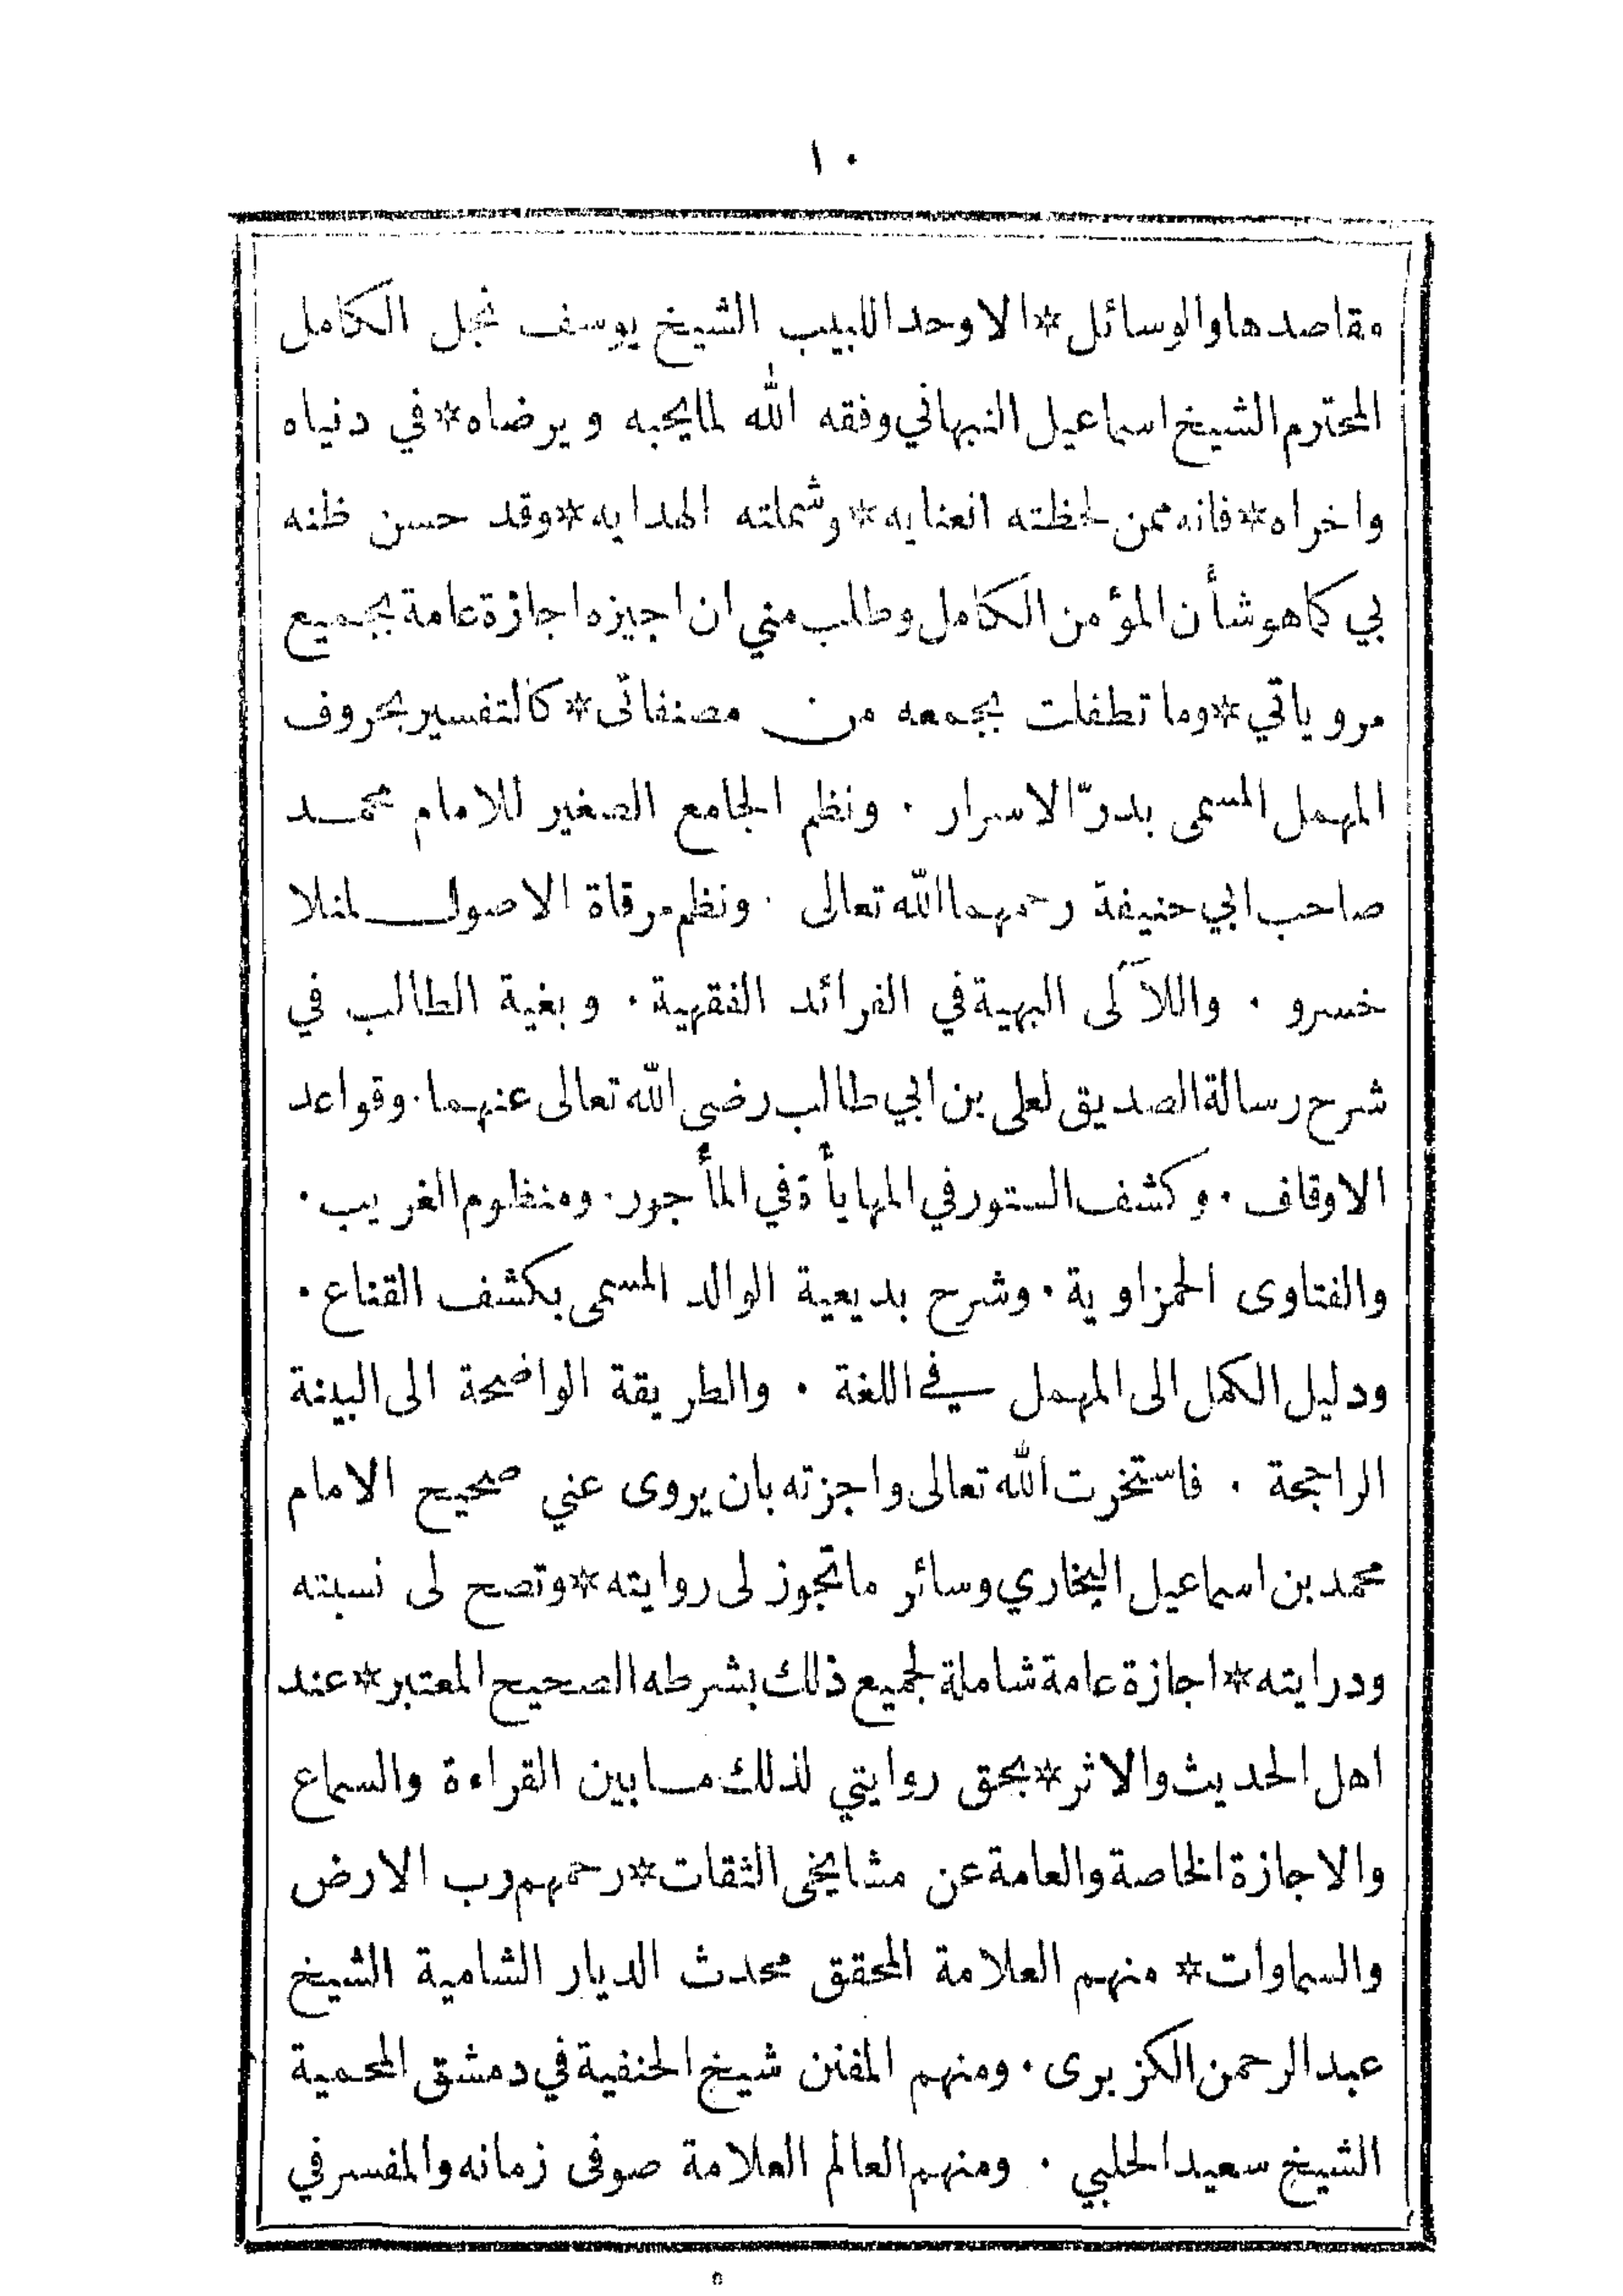 ١٠
مقاصدها والوسائل*الاوحد اللبيب الشيخ يوسف نجل الكامل
المحترم الشيخ اسماعيل النبهاني وفقه الله لما يحبه ويرضاه*في دنياه
واخراه*فانه ممن لحظته العنايه*وشملته الهدايه*وقد حسن ظنه
بي كما هو شأن المؤمن الكامل وطلب مني ان اجيزه اجازة عامة بجميع
مروياتي*وما تطفلت بجمعه من مصنفاتى*كالتفسير بحروف
المهمل المسمى بدرّ الاسرار . ونظم الجامع الصغير للامام محمد
صاحب ابي حنيفة رحمهما الله تعالى . ونظم مرقاة الاصول لمنلا
خسرو . واللآلى البهية في الفرائد الفقهية . وبغية الطالب في
شرح رسالة الصديق لعلى بن ابي طالب رضى الله تعالى عنهما . وقواعد
الاوقاف . وكشف الستور في المهايأة في المأجور . ومنظوم الغريب .
والفتاوى الحمزاوية . وشرح بديعية الوالد المسمى بكشف القناع .
ودليل الكمل الى المهمل في اللغة . والطريقة الواضحة الى البينة
الراجحة . فاستخرت الله تعالى واجزته بان يروى عني صحيح الامام
محمد بن اسماعيل البخاري وسائر ما تجوز لى روايته*وتصح لى نسبته
ودرايته*اجازة عامة شاملة لجميع ذلك بشرطه الصحيح المعتبر*عند
اهل الحديث والاثر*بحق روايتي لذلك ما بين القراءة والسماع
والاجازة الخاصة والعامة عن مشايخى الثقات*رحمهم رب الارض
والسماوات* منهم العلامة المحقق محدث الديار الشامية الشيخ
عبد الرحمن الكزبرى . ومنهم المفنن شيخ الحنفية في دمشق المحمية
الشيخ سعيد الحلبي . ومنهم العالم العلامة صوفى زمانه والمفسر في